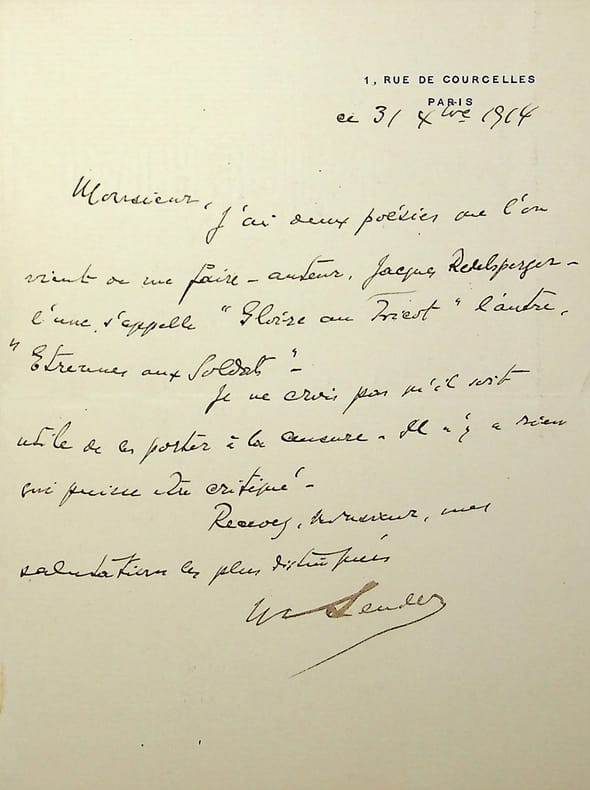 1, RUE DE COURCELLES
PARIS
ce 31 Xbre 1914
Monsieur,
J'ai deux poésies que l'on
vient de me faire - auteur, Jacques Redelsperger -
l'une s'appelle "Gloire au Tricot" l'autre,
"Etrennes aux Soldats" -
Je ne crois pas qu'il soit
utile de les porter à la censure - Il n'y a rien
qui puisse être critiqué -
Recevez, Monsieur, mes
salutations les plus distinguées
Lender